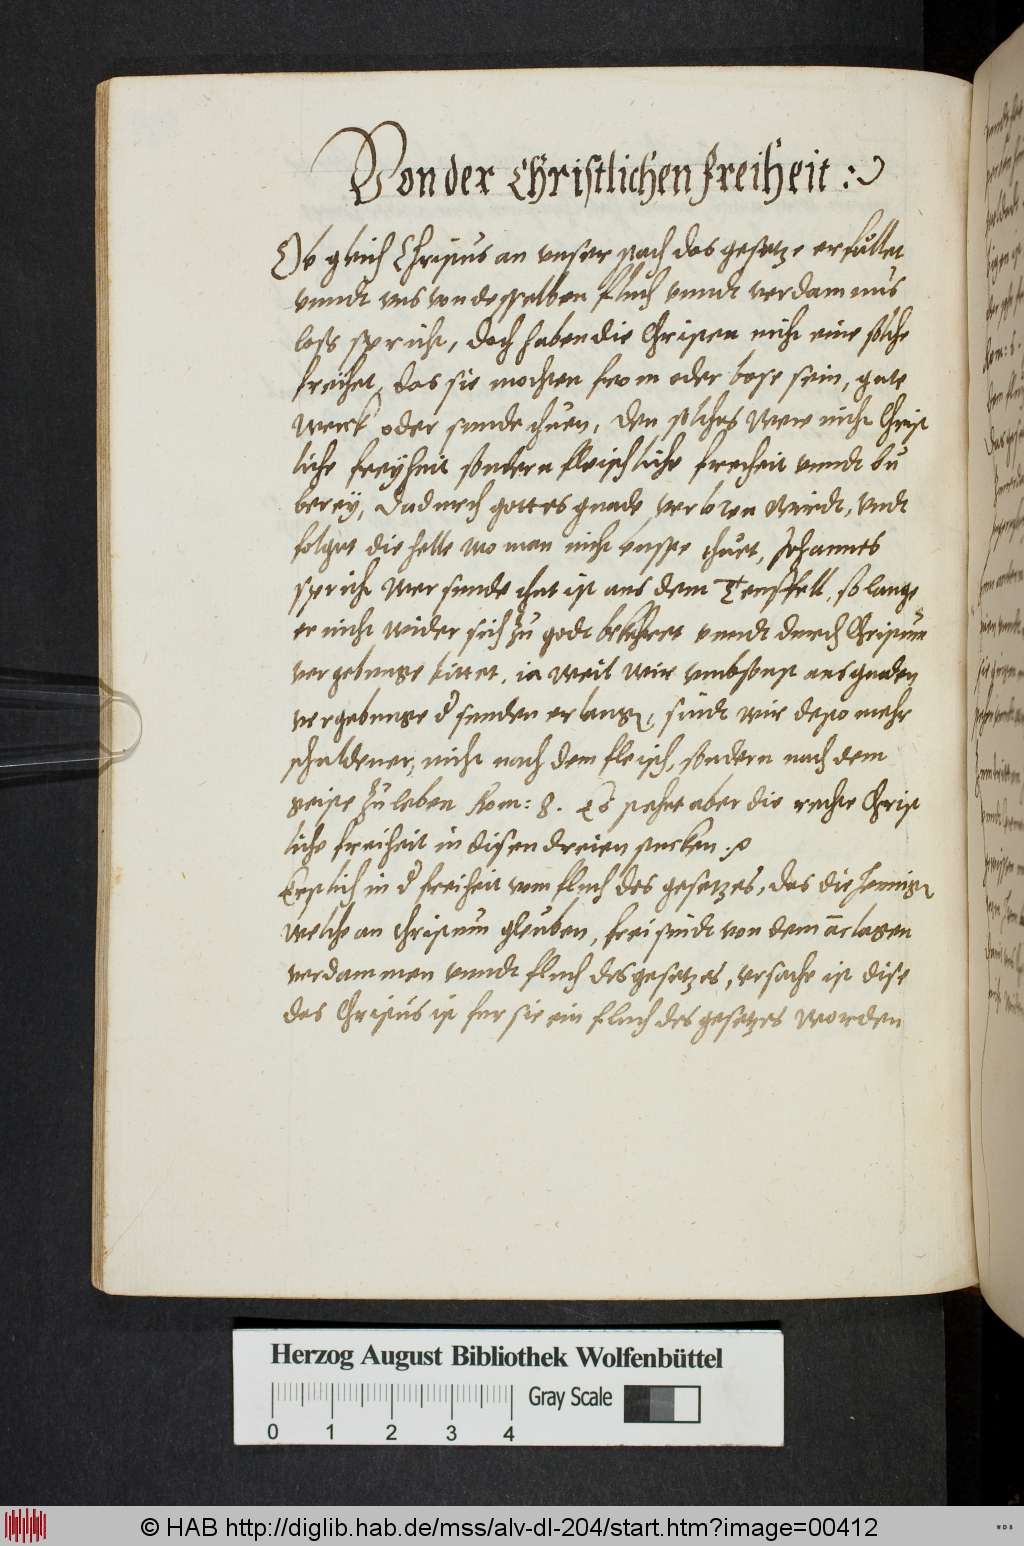 Von der Christlichen freiheit :
Ob gleich Christus an unser stach das gesetze erfullet
vnndt vns von desselben fluch vnndt verdamnus
loss spricht, doch haben die Christen nicht eine solche
freihet, das sie mochten from oder bose sein, gute
werck oder sunde thuen, den solches were nicht Christ
liche freyheit sondern fleischliche frecheit vnndt bu
berey, dadurch gottes gnade verloren wirdt, vndt
folget die helle wo man nicht busse thuet, Johannes
spricht wer sunde thut ist aus dem Teuffell, so lange
er nicht wider sich zu godt bekehret vnndt durch Christum
vergebunge bittet, ia weil wir vmbsonst aus gnaden
vergebunge d sunden erlang, sindt wir desto mehr
schuldener, nicht nach dem fleisch, sondern nach dem
geiste zu leben Rom: 8. Es stehet aber die rechte Christ
liche freiheit in disen dreien stucken.
Erstlich in d freiheit vom fluch des gesetzes, das die jenig
welche an Christum gleuben, frei sindt von dem anclagen
verdammen vnndt fluch des gesetzes, ursache ist dise
das Christus ist fur sie ein fluch des gesetzes worden
Herzog August Bibliothek Wolfenbüttel
Gray Scale
0 1 2 3 4
© HAB http://diglib.hab.de/mss/alv-dl-204/start.htm?image=00412